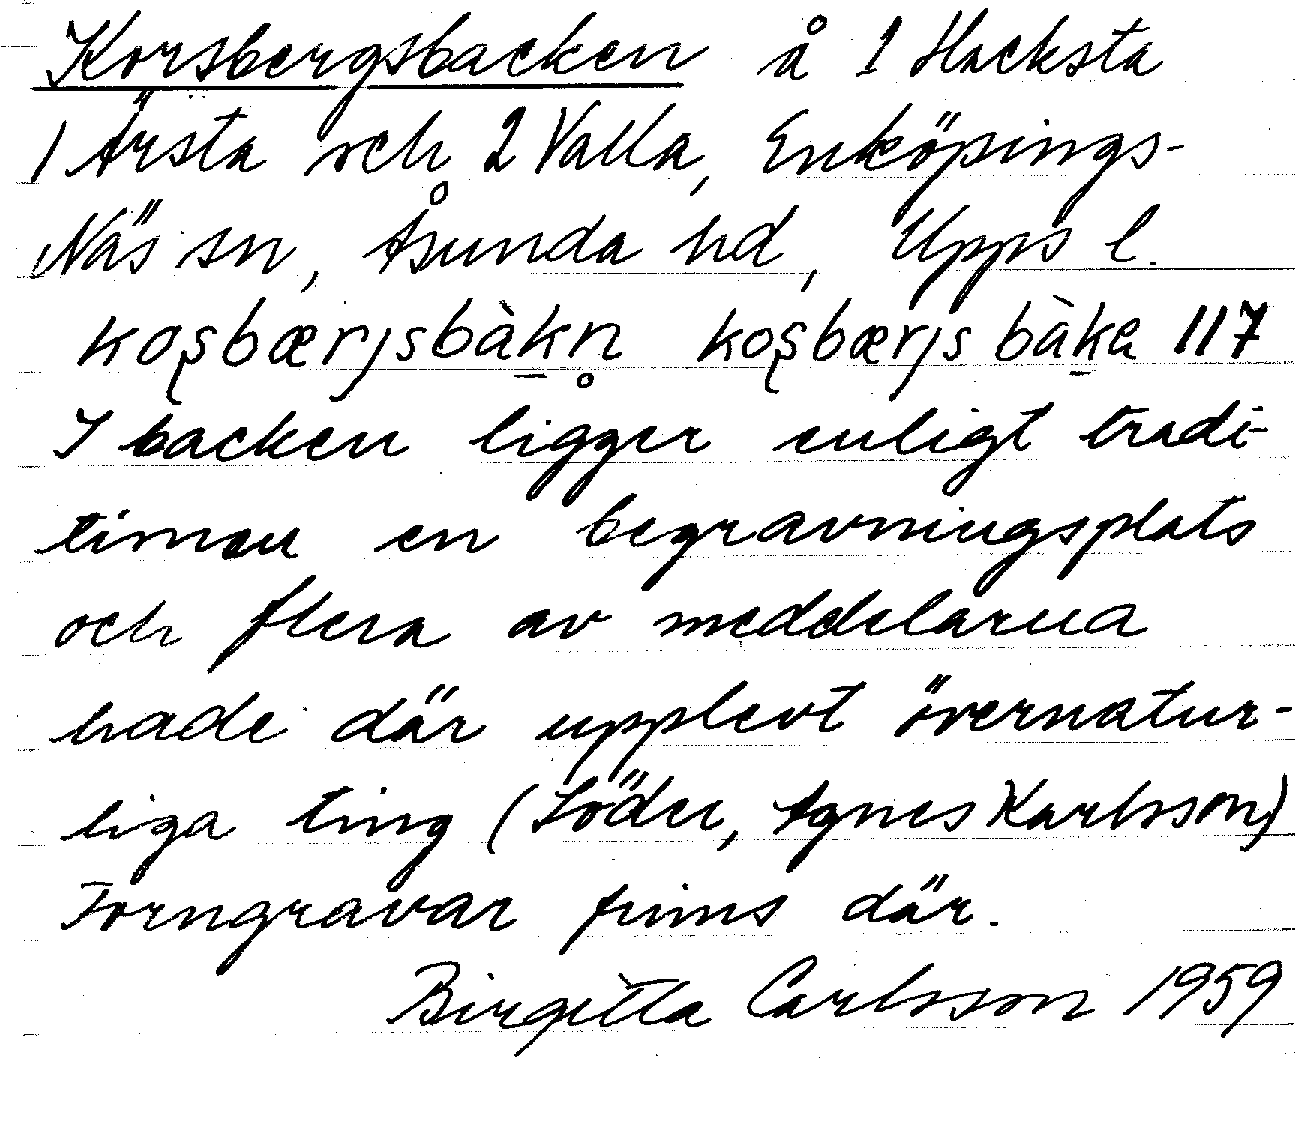 Korsbergsbacken å 1 Hacksta
1 Ärsta och 2 Valla, Enköpings-
Näs sn, Åsunda hd, Upps l.
koʂbærjsbàk̲n̥ koʂbærjs bàk̲a 117
I backen ligger enligt tradi-
tionen en begravningsplats
och flera av meddelarna
hade där upplevt övernatur-
liga ting (Söder, Agnes Karlsson)
Forngravar finns där.
Birgitta Carlsson 1959